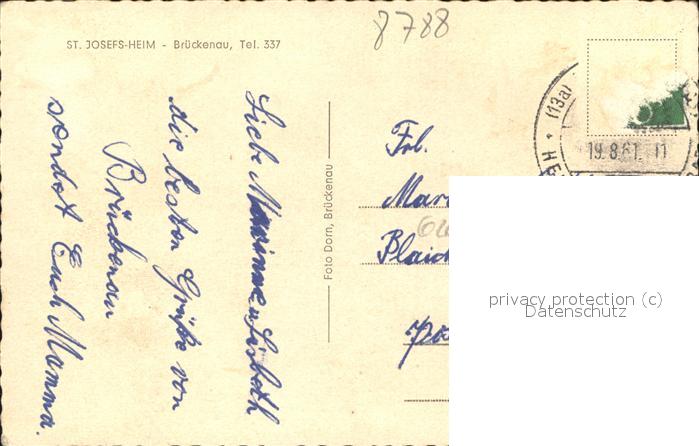 8788
ST. JOSEFS-HEIM - Brückenau, Tel. 337
Liebe Marianne u. Lisbeth
die besten Grüße von
Brückenau
sendet Euch Mamma.
Foto Dorn, Brückenau
(13a)
19.8.61
Frl.
privacy protection (c)
Datenschutz